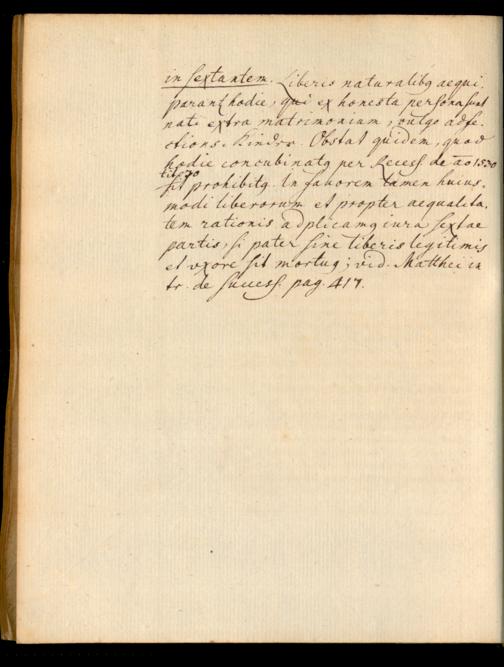 in sextantem. Liberis naturalibq aequi.
parant hodie, qui ex honesta persona sunt
nati extra matrimonium, vulgo adfe-
ctions-Kinder. Obstat quidem, quod
hodie concubinatq per Recess. de ao 1530
tit. 70
sit prohibitq. In favorem tamen huius-
modi liberorum et propter aequalita-
tem rationis adplicamq iura sextae
partis, si pater sine liberis legitimis
et vxore sit mortuq; vid. Matthei in
tr. de success. pag. 417.